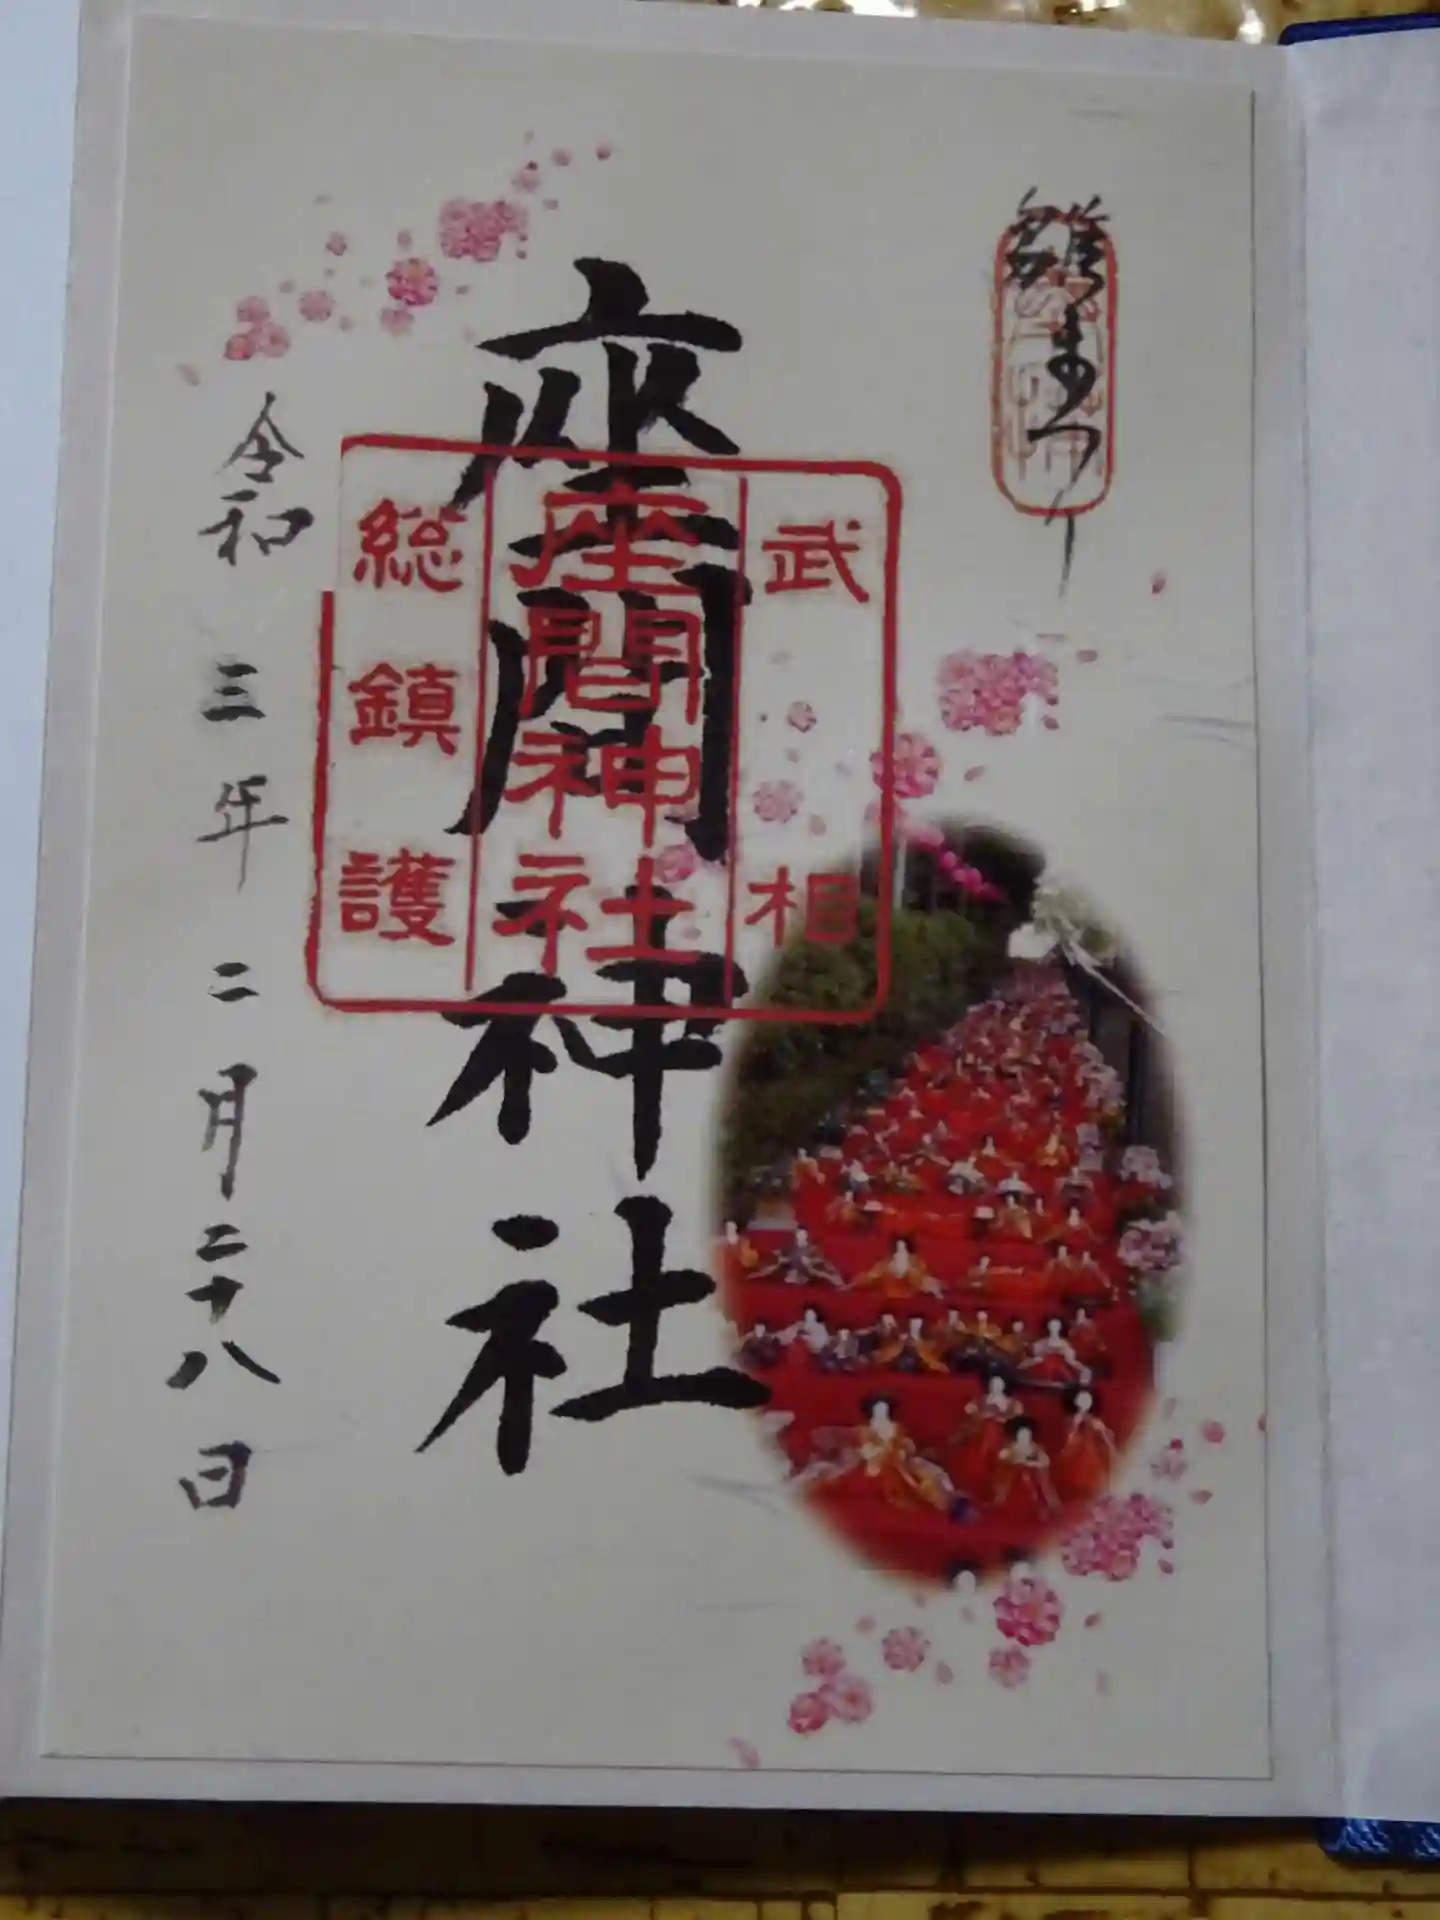 雛まつり
武相
座間神社
総鎮護
座間神社
令和三年二月二十八日